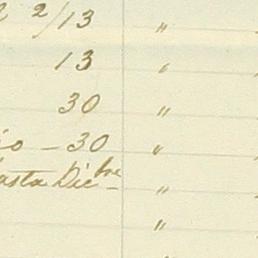 2/13 "
13 "
30 "
io - 30 "
asta Dic bre "
"
"